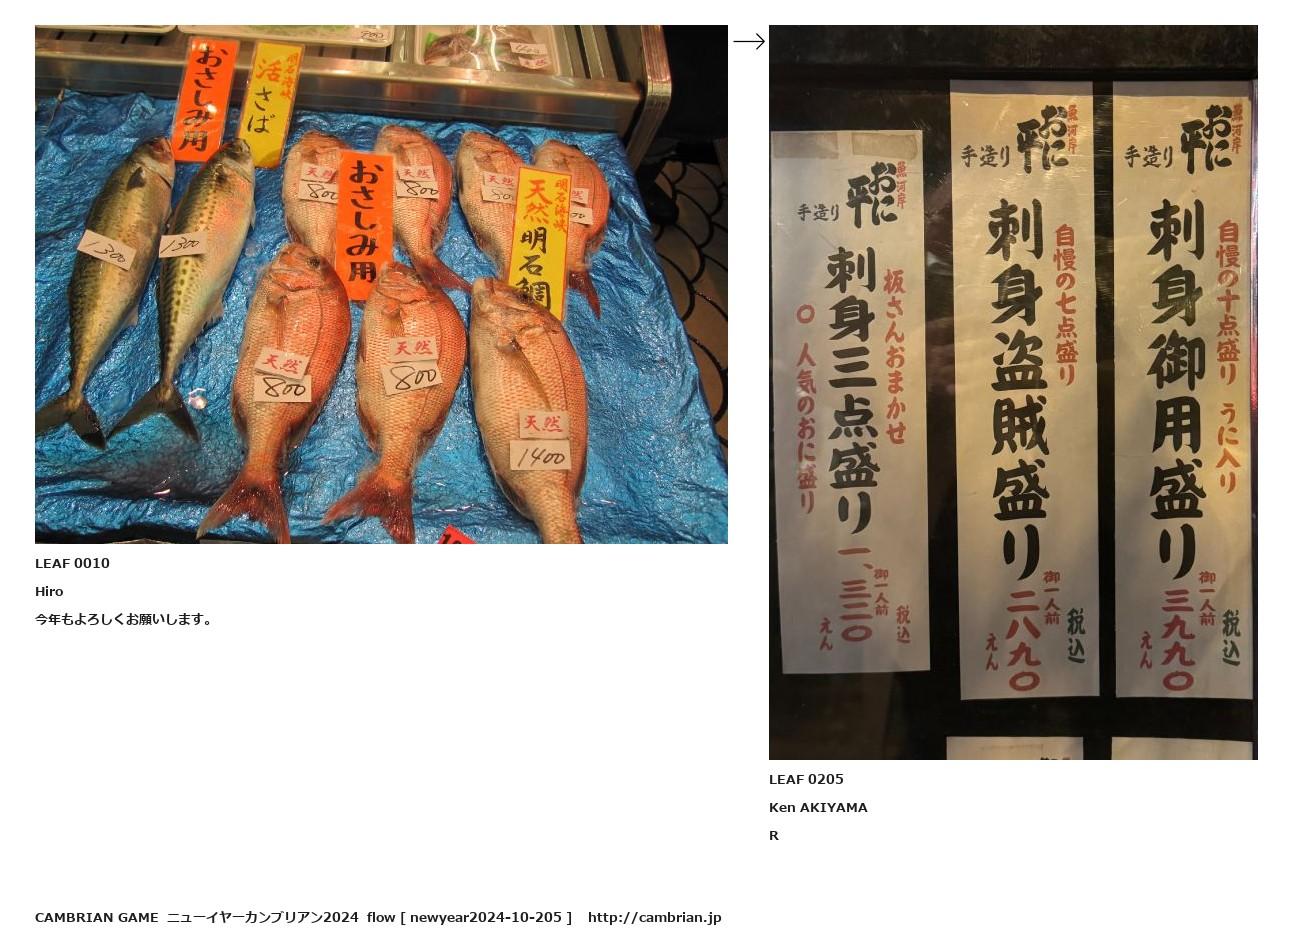 おさしみ用
明石海峡
活さば
おさしみ用
明石海峡
天然明石鯛
天然
800
天然
800
天然
天然
800
天然
800
天然
1400
1300
1300
LEAF 0010
Hiro
今年もよろしくお願いします。
魚河岸
おに平
手造り
自慢の十点盛り うに入り
刺身御用盛り
御一人前
三九九〇
えん
税込
魚河岸
おに平
手造り
自慢の七点盛り
刺身盗賊盛り
御一人前
二八九〇
えん
税込
魚河岸
おに平
手造り
板さんおまかせ
刺身三点盛り
〇 人気のおに盛り
御一人前
一、三二〇
えん
税込
LEAF 0205
Ken AKIYAMA
R
CAMBRIAN GAME ニューイヤーカンブリアン2024 flow [ newyear2024-10-205 ] http://cambrian.jp